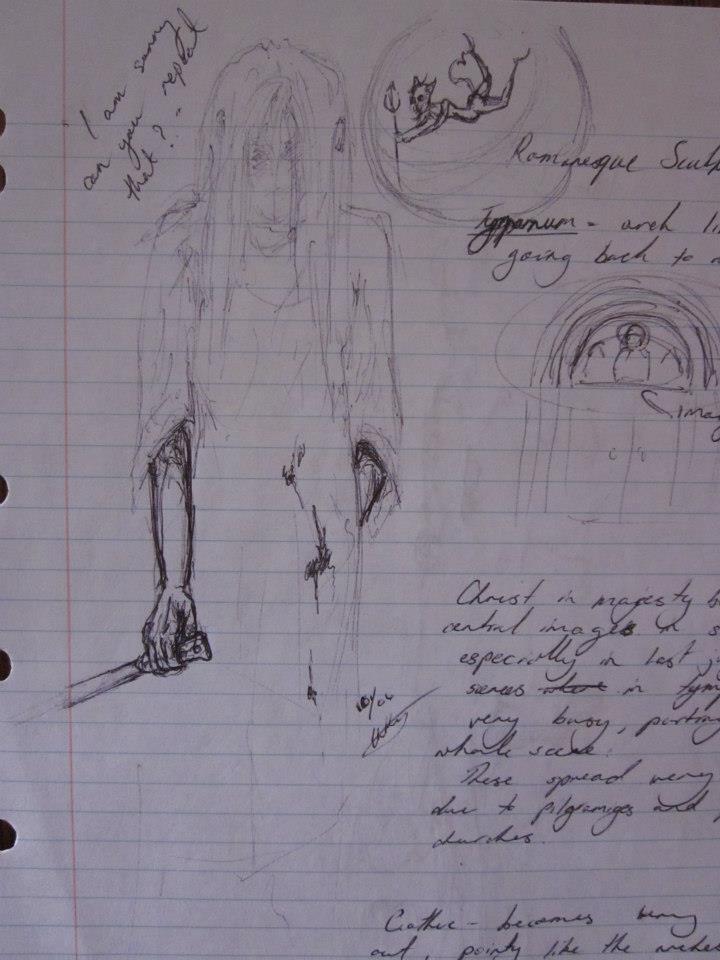 I am sorry
can you repeat
that? -
Romanesque Sculp
Tympanum - arch li
going back to a
imag
Christ in majesty b
central images in s
especially in last j
scenes where in tym
very busy, portray
whole scene.
These spread very
due to pilgrimages and
churches.
10/04
Gothic - becomes very
out, pointy like the arches